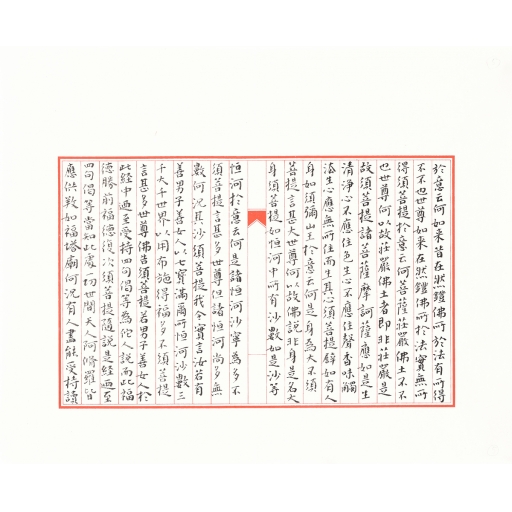 於意云何如來昔在然燈佛所於法有所得
不不也世尊如來在然燈佛所於法實無所
得須菩提於意云何菩薩莊嚴佛土不不
也世尊何以故莊嚴佛土者即非莊嚴是
故須菩提諸菩薩摩訶薩應如是生
清淨心不應住色生心不應住聲香味觸
法生心應無所住而生其心須菩提譬如有人
身如須彌山王於意云何是身為大不須
菩提言甚大世尊何以故佛說非身是名大
身須菩提如恒河中所有沙數如是沙等
恒河於意云何是諸恒河沙寧為多不
須菩提言甚多世尊但諸恒河尚多無
數何況其沙須菩提我今實言汝若有
善男子善女人以七寶滿爾所恒河沙數三
千大千世界以用布施得福多不須菩提
言甚多世尊佛告須菩提若男子善女人於
此經中迺至受持四句偈等為佗人說而此福
德勝前福德復次須菩提隨說是經迺至
四句偈等當知此處一切世間天人阿修羅皆
應供敎如福塔廟何況有人盡能受持讀